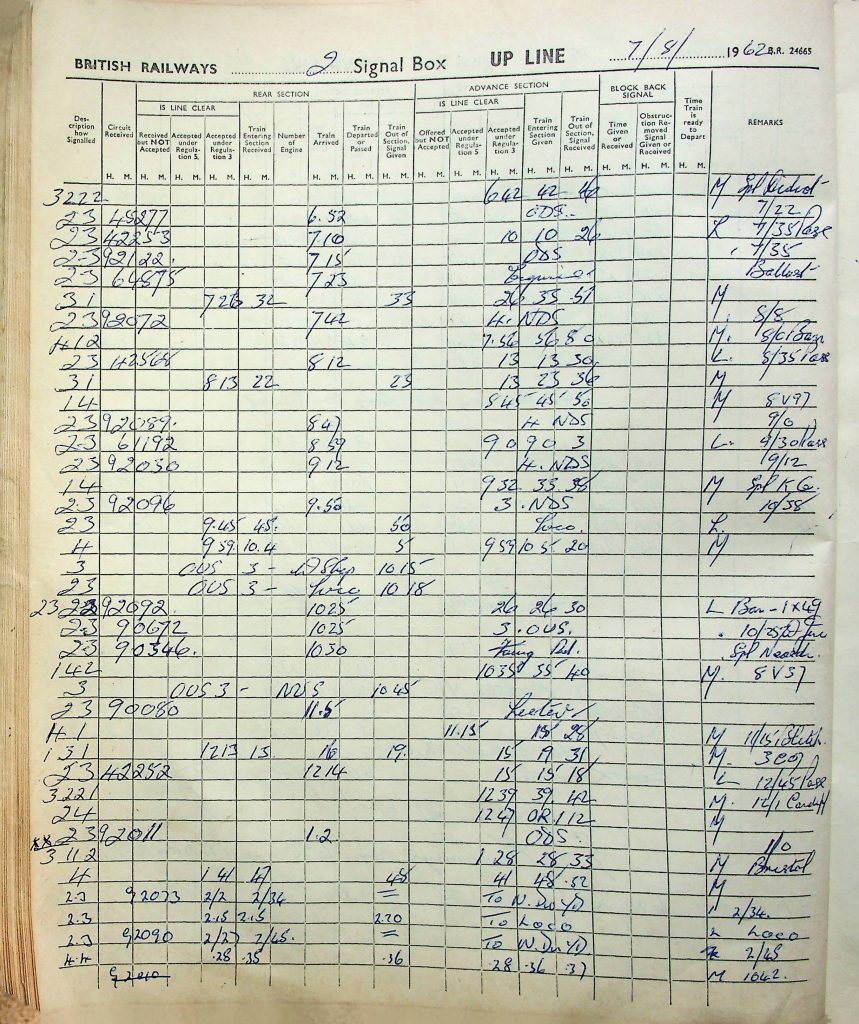 7/8/ 1962 B.R. 24665
BRITISH RAILWAYS 2 Signal Box UP LINE
REAR SECTION ADVANCE SECTION BLOCK BACK SIGNAL
IS LINE CLEAR IS LINE CLEAR
Description how Signalled Circuit Received Received but NOT Accepted Accepted under Regulation 5. Accepted under Regulation 3 Train Entering Section Received Number of Engine Train Arrived Train Departed or Passed Train Out of Section, Signal Given Offered but NOT Accepted Accepted under Regulation 5 Accepted under Regulation 3 Train Entering Section Given Train Out of Section, Signal Received Time Given or Received Obstruction Removed Signal Given or Received Time Train is ready to Depart REMARKS
H. M. H. M. H. M. H. M. H. M. H. M. H. M. H. M. H. M. H. M. H. M. H. M. H. M. H. M. H. M. H. M.
3222 642 42 46 M Spl
23 45277 6.52 ODS. 7/22
23 42253 7.10 10 10 26 L 7/35 Pass
23 92122. 7.15 ODS 7/35
23 64875 7 23 Ballast
31 726 32 33 26 33 51 M
23 92072 742 H. NDS 8/8
412 7.56 56 8 0 M.
23 42568 8 12 13 13 30 L. 8/35 Pass
31 813 22 23 13 23 36 M
14 845 45 50 M 8V97
23 92089. 8 47 H NDS 9/0
23 61192 8 59 90 90 3 L. 9/30 Pass
23 92030 9 12 H. NDS 19/12
14 932 33 38 M Spl K Co.
23 92096 9.50 3. NDS 10/38
23 9.45 45. 50 Loco. L.
4 959 10.4 5 959 10 5 20 M
3 OUS 3 - 10 15
23 OUS 3 - Loco 10 18
23 23 92092. 1025 26 26 30 L Ban - 1X49
23 90672 1025 3. OUS.
23 90346. 1030 Spl Neasden
142 1035 35 40 M. 8V37
3 OUS 3 - NUS 1045
23 90080 11.5
41 11.15 15 28 M
131 1213 15 16 19. 15 19 31 M.
23 42252 1214 15 15 18 L 12/45 Pass
3221 1239 39 42 M. 12/1 Cardiff
24 1247 OR 1 12 M
XX 23 92011 1.2 ODS 1/0
3112 1 28 28 33 M Bristol
4 1 41 47 48 41 48 .52 M
2.3 92073 2/2 2/34 = To N. Dn Yd 2/34.
2.3 2.15 2.15 2.20 To Loco L LOCO
2.3 92090 2/27 2/45. = To N. Dn Yd 2/45
4.4 .28 .35 .36 .28 .36 .37 M 1042.